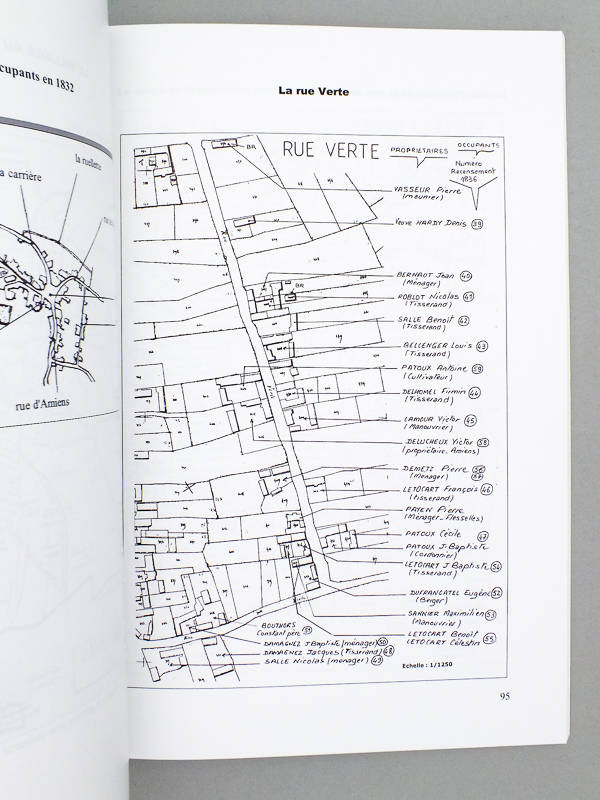 cupants en 1832
la ruellette
a carrière
rue d'Amiens
La rue Verte
RUE VERTE
PROPRIETAIRES
OCCUPANTS
Numéro
Recensement
1836
BR
VASSEUR Pierre
(meunier)
Veuve HARDY Denis 39
BERNAUT Jean 40
(Ménager)
BR
ROBLOT Nicolas 41
(Tisserand)
SALLE Benoît 42
(Tisserand)
GELLENGER Louis 43
(Tisserand)
PATOUX Antoine 59
(Cultivateur)
DELHOMEL Firmin 44
(Tisserand)
LAMOUR Victor 45
(Manouvrier)
DELUCHEUX Victor 58
(propriétaire, Amiens)
DEMETZ Pierre 56
(Ménager) 57
LETOCART François 46
(tisserand)
PAYEN Pierre
(Ménager_Flesselles)
PATOUX Cécile 47
PATOUX J-Baptiste
(Cordonnier)
LETOCART J Baptiste 54
(Tisserand)
DUFRANCATEL Eugène 52
(Berger)
SANNIER Maximilien 53
(Manouvrier)
LETOCART Benoît
LETOCART Célestin 55
BOUTHORS
Constant père 51
DAMAGNEZ J Baptiste (ménager) 50
DAMAGNEZ Jacques (Tisserand) 48
SALLE Nicolas (ménager) 49
Echelle : 1/1250
95